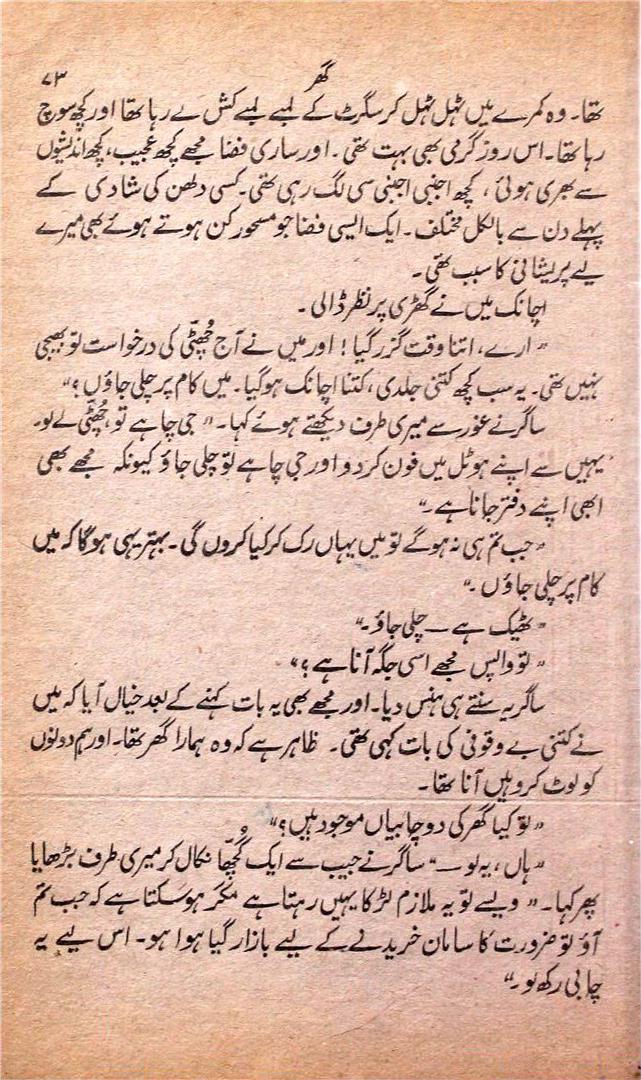 گھر
۷۳
تھا۔ وہ کمرے میں ٹہل ٹہل کر سگرٹ کے لمبے لمبے کش لے رہا تھا اور کچھ سوچ
رہا تھا۔ اس روز گرمی بھی بہت تھی۔ اور ساری فضا مجھے کچھ عجیب، کچھ اندیشوں
سے بھری ہوئی، کچھ اجنبی اجنبی سی لگ رہی تھی۔ کسی دلھن کی شادی کے
پہلے دن سے بالکل مختلف۔ ایک ایسی فضا جو مسحور کن ہوتے ہوئے بھی میرے
لیے پریشانی کا سبب تھی۔
اچانک میں نے گھڑی پر نظر ڈالی۔
”ارے، اتنا وقت گزر گیا! اور میں نے آج چُھٹّی کی درخواست تو بھیجی
نہیں تھی۔ یہ سب کچھ کتنی جلدی، کتنا اچانک ہوگیا۔ میں کام پر چلی جاؤں؟“
ساگر نے غور سے میری طرف دیکھتے ہوئے کہا۔ ”جی چاہے تو چُھٹّی لے لو۔
یہیں سے اپنے ہوٹل میں فون کر دو اور جی چاہے تو چلی جاؤ کیونکہ مجھے بھی
ابھی اپنے دفتر جانا ہے۔“
”جب تم ہی نہ ہو گے تو میں یہاں رک کر کیا کروں گی۔ بہتر یہی ہوگا کہ میں
کام پر چلی جاؤں۔“
”ٹھیک ہے — چلی جاؤ۔“
”تو واپس مجھے اسی جگہ آنا ہے؟“
ساگر یہ سنتے ہی ہنس دیا۔ اور مجھے بھی یہ بات کہنے کے بعد خیال آیا کہ میں
نے کتنی بے وقوفی کی بات کہی تھی۔ ظاہر ہے کہ وہ ہمارا گھر تھا۔ اور ہم دونوں
کو لوٹ کر وہیں آنا تھا۔
”تو کیا گھر کی دو چابیاں موجود ہیں؟“
”ہاں، یہ لو —“ ساگر نے جیب سے ایک گُچّھا نکال کر میری طرف بڑھایا
پھر کہا۔ ”ویسے تو یہ ملازم لڑکا یہیں رہتا ہے مگر ہو سکتا ہے کہ جب تم
آؤ تو ضرورت کا سامان خریدنے کے لیے بازار گیا ہوا ہو۔ اس لیے یہ
چابی رکھ لو۔“